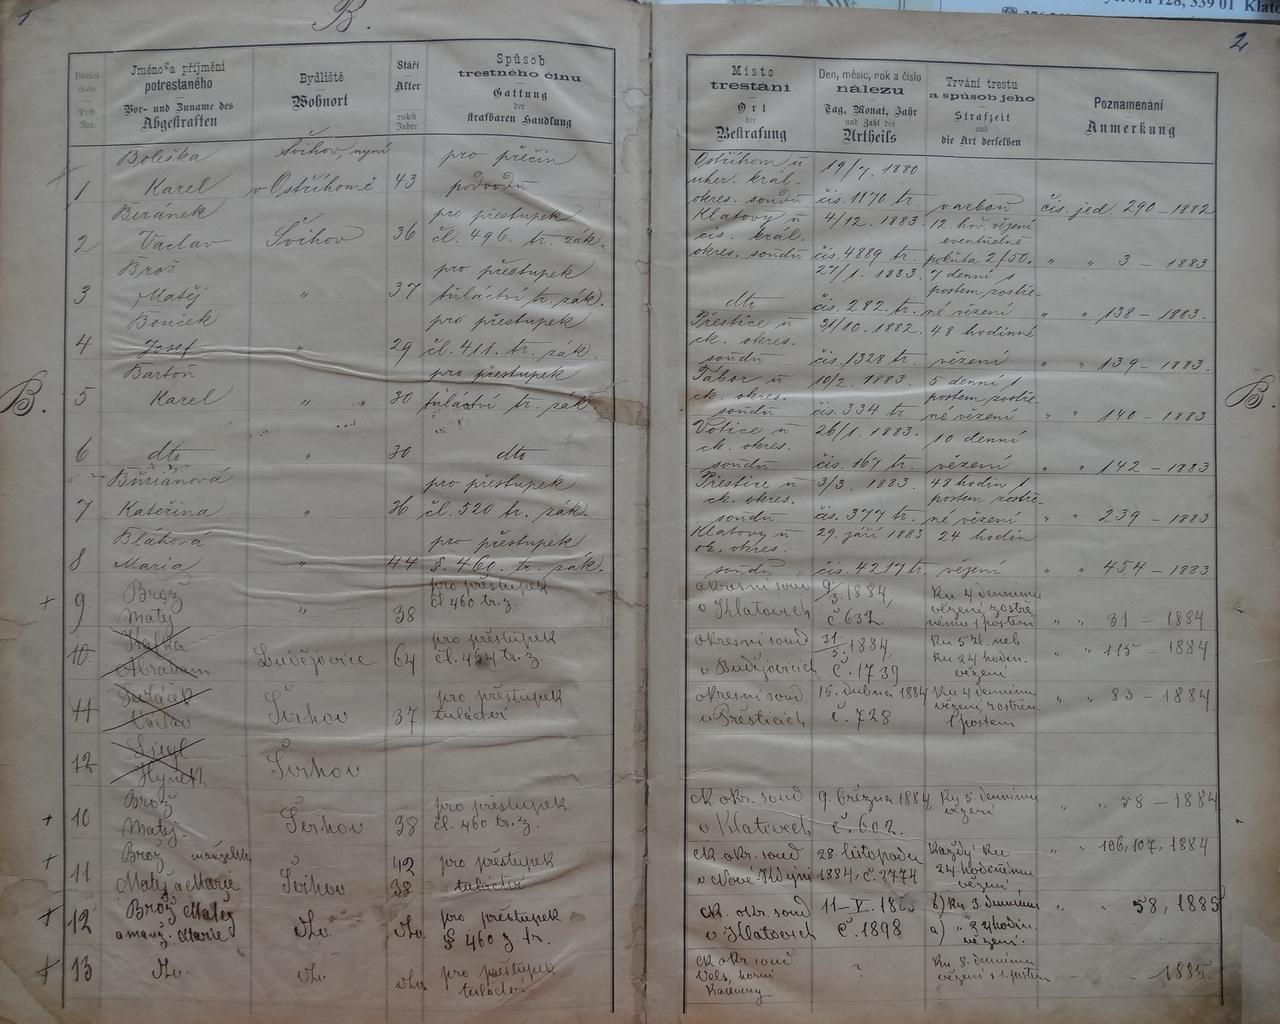 128, 339 01 Klato
1
B.
2
Běžící číslo
Jméno a příjmění potrestaného
Vor- und Zuname des Abgestraften
Bydliště
Wohnort
Stáří
Alter
roků
Jahre
Spůsob trestného činu
Gattung der strafbaren Handlung
Místo trestání
Ort der Bestrafung
Den, měsíc, rok a číslo nálezu
Tag, Monat, Jahr und Zahl des Urtheils
Trvání trestu a spůsob jeho
Strafzeit und die Art derselben
Poznamenání
Anmerkung
1 Boleška Karel Švihov, nyní v Ostřihomě 43 pro přečin podvodu
Ostřihom u uher. král. okres. soudu 19/7. 1880 čís. 1170 tr. vazbou čís. jed. 290 – 1882
2 Beránek Václav Švihov 36 pro přestupek čl. 496. tr. zák.
Klatovy u cís. král. okres. soudu 4/12. 1883. čís. 4889 tr. 12 hod. vězení eventuelně pokuta 2/50. " " 3 – 1883
3 Brož Matěj " 37 pro přestupek tuláctví tr. zák.
dto 27/1. 1883. čís. 282. tr. 7 denní s postem zostřené vězení " " 138 – 1883.
4 Bouček Josef " 29 pro přestupek čl. 411. tr. zák.
Přeštice u ck. okres. soudu 31/10. 1882. čís. 1328 tr. 48 hodinné vězení " " 139 – 1883.
5 Bartoň Karel " " 30 pro přestupek tuláctví tr. zák
Tábor u ck. okres. soudu 10/2. 1883. čís. 334 tr. 5 denní 1 postem zostřené vězení " " 140 – 1883
B.
B.
6 dto " 30 dto
Votice u ck. okres. soudu 26/1. 1883. čís. 167 tr. 10 denní vězení " " 142 – 1883
7 Buriánová Kateřina " 36 pro přestupek čl. 520 tr. zák.
Přeštice u ck. okres. soudu 3/3. 1883. čís. 377 tr. 48 hodin 1 postem zostřené vězení " " 239 – 1883
8 Bláhová Maria " 44 pro přestupek §. 460. tr. zák.
Klatovy u ck. okres. soudu 29. září 1883 čís. 4217 tr. 24 hodin vězení " " 454 – 1883
+ 9 Brož Matěj " 38 pro přestupek čl 460 tr. z.
okresní soud v Klatovech 9/3. 1884, č 632 Ku 4 dennímu vězení zostřenému 1 postem " " 31 – 1884
10. Abraham Budějovice 64 pro přestupek čl. 464 tr. z
okresní soud v Budějovicích 31/5. 1884, č. 1739 Ku 5 zl. neb ku 24 hodin. vězení " " 115 – 1884
11 Václav Švihov 37. pro přestupek tuláctví
okresní soud v Přešticích 15. dubna 1884 č. 728 Ku 4 dennímu vězení zostřen. 1 postem " " 83 – 1884
12 Hynek Švihov
+ 10 Brož Matěj. Švihov 38 pro přestupek čl. 460 tr. z.
ck okr. soud v Klatovech 9. března 1884 č. 602. Ku 5 dennímu vězení " " 58 – 1884
+ 11 Brož manželka Matěj a Marie Švihov 42 38 pro přestupek tuláctví
ck okr. soud v Nové Kdyni 28. listopadu 1884, č. 2774 Každý ku 24 hodinnému vězení " " 106, 107, 1884
+ 12 Brož Matěj a manž. Marie dto. dto. pro přestupek § 460 z. tr.
ck. okr. soud v Klatovech 11–V. č. 1898 b) ku 3. dennímu a) " 24 hodin. vězení. " " 58, 1885
+ 13 dto. dto. dto pro přestupek tuláctví.
ck okr soud Vels, horní Rakousy ? Ku 8. dennímu vězení s 1. postem 1885.